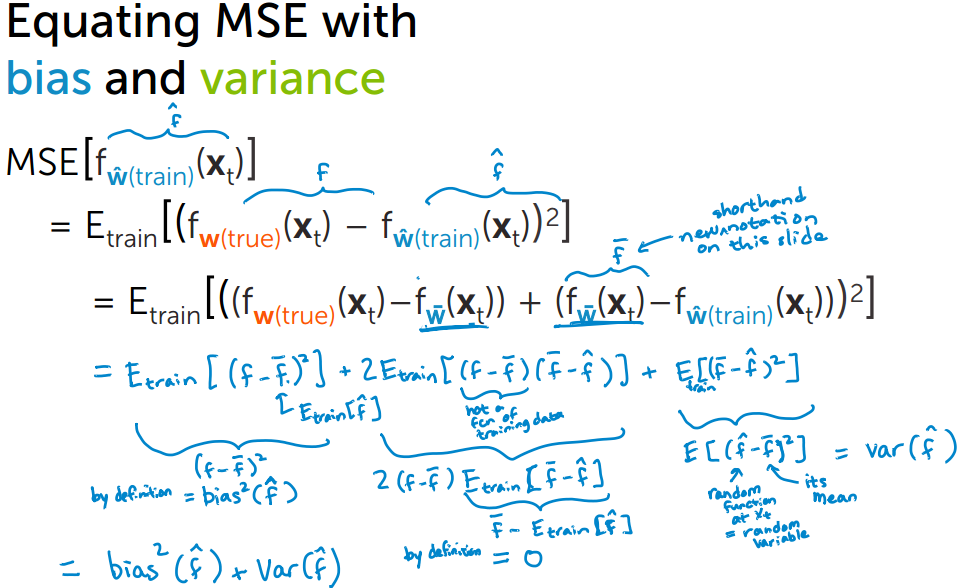 Equating MSE with
bias and variance
f̂
MSE[f_ŵ(train)(x_t)]
f
f̂
= E_train[(f_w(true)(x_t) − f_ŵ(train)(x_t))²]
shorthand
new notation
on this slide
f̄
= E_train[((f_w(true)(x_t)−f_w̄(x_t)) + (f_w̄(x_t)−f_ŵ(train)(x_t)))²]
= E_train[(f-f̄)²] + 2E_train[(f-f̄)(f̄-f̂)] + E_train[(f̄-f̂)²]
E_train[f̂]
not a
fcn of
training data
(f-f̄)²
by definition = bias²(f̂)
2(f-f̄) E_train[f̄-f̂]
f̄ - E_train[f̂]
by definition = 0
E[(f̂-f̄)²] = var(f̂)
random
function
at x_t
= random
variable
its
mean
= bias²(f̂) + Var(f̂)